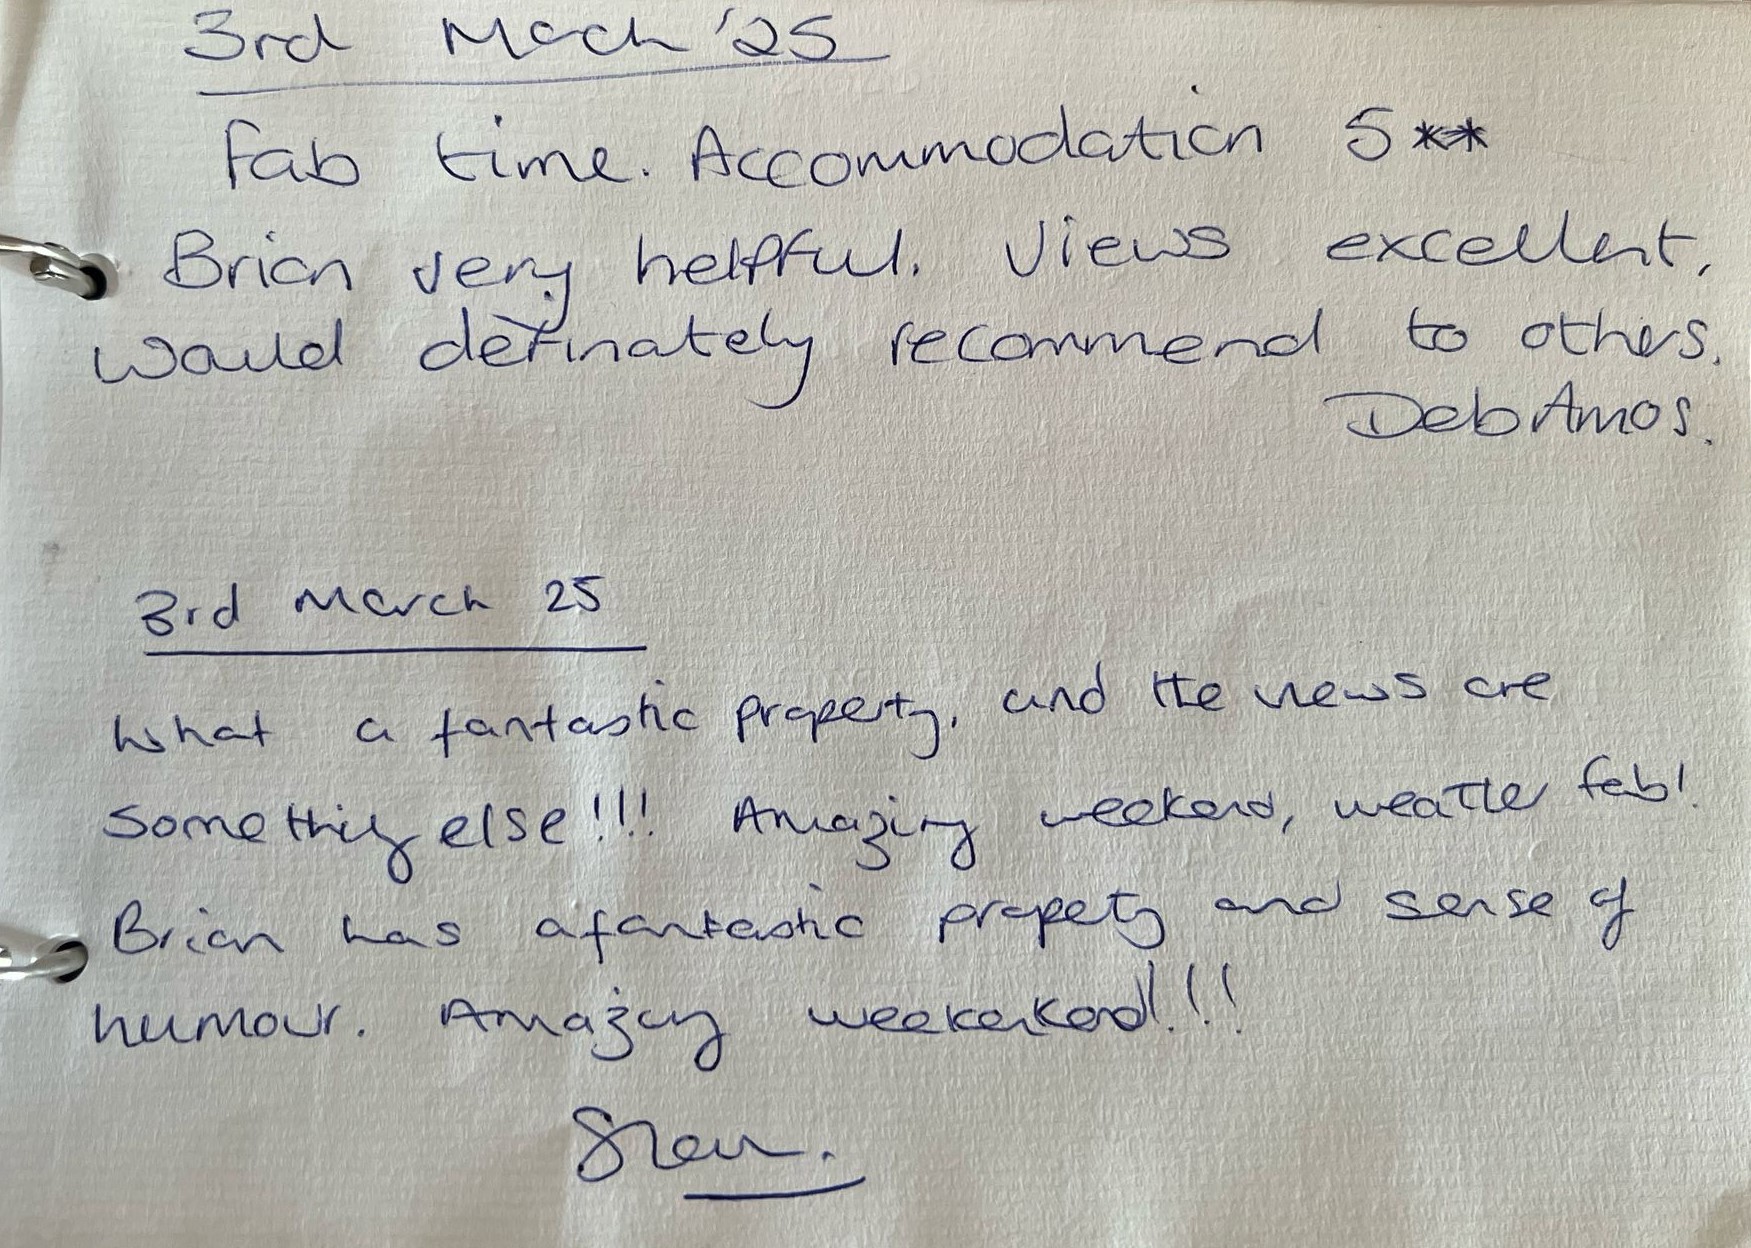 3rd March '25
Fab time. Accommodation 5**
Brian very helpful. Views excellent,
would definately recommend to others.
Deb Amos.
3rd March 25
What a fantastic property, and the views are
something else!!! Amazing weekend, weather fab!
Brian has a fantastic property and sense of
humour. Amazing weekend!!!